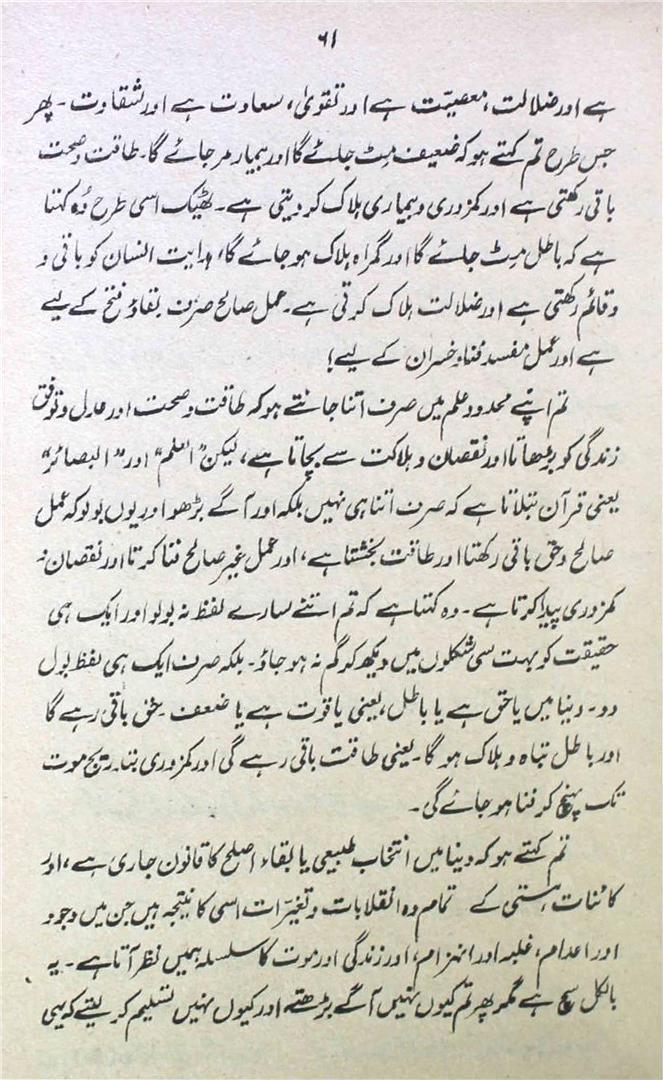 ۶۱
ہے اور ضلالت، معصیّت ہے اور تقویٰ، سعادت ہے اور شقاوت ۔ پھر
جس طرح تم کہتے ہو کہ ضعیف مِٹ جائے گا اور بیمار مر جائے گا۔ طاقت و صحت
باقی رکھتی ہے اور کمزوری و بیماری ہلاک کر دیتی ہے۔ ٹھیک اسی طرح وُہ کہتا
ہے کہ باطل مِٹ جائے گا اور گمراہ ہلاک ہو جائے گا، ہدایت انسان کو باقی و
و قائم رکھتی ہے اور ضلالت ہلاک کرتی ہے۔ عمل صالح صرف بقاؤ فتح کے لیے
ہے اور عمل مفسد فناء و خسران کے لیے!
تم اپنے محدود علم میں صرف اتنا جانتے ہو کہ طاقت و صحت اور عدل و توفق
زندگی کو بڑھاتا اور نقصان و ہلاکت سے بچاتا ہے، لیکن "العلم" اور "البصائر"
یعنی قرآن بتلاتا ہے کہ صرف اتنا ہی نہیں بلکہ اور آگے بڑھو اور یوں بولو کہ عمل
صالح و حق باقی رکھتا اور طاقت بخشتا ہے، اور عمل غیر صالح فنا کرتا اور نقصان و
کمزوری پیدا کرتا ہے۔ وہ کہتا ہے کہ تم اتنے سارے لفظ نہ بولو اور ایک ہی
حقیقت کو بہت سی شکلوں میں دیکھ کر گم نہ ہو جاؤ۔ بلکہ صرف ایک ہی لفظ بول
دو۔ دنیا میں یا حق ہے یا باطل، یعنی یا قوت ہے یا ضعف۔ حق باقی رہے گا
اور باطل تباہ و ہلاک ہو گا۔ یعنی طاقت باقی رہے گی اور کمزوری بتدریج موت
تک پہنچ کر فنا ہو جائے گی۔
تم کہتے ہو کہ دنیا میں انتخاب طبیعی یا بقاء اصلح کا قانون جاری ہے، اور
کائنات ہستی کے تمام وہ انقلابات و تغیرّات اسی کا نتیجہ ہیں جن میں وجود
اور اعدام، غلبہ اور انہزام، اور زندگی اور موت کا سلسلہ ہمیں نظر آتا ہے۔ یہ
بالکل سچ ہے مگر پھر تم کیوں نہیں آگے بڑھتے اور کیوں نہیں تسلیم کر لیتے کہ یہی